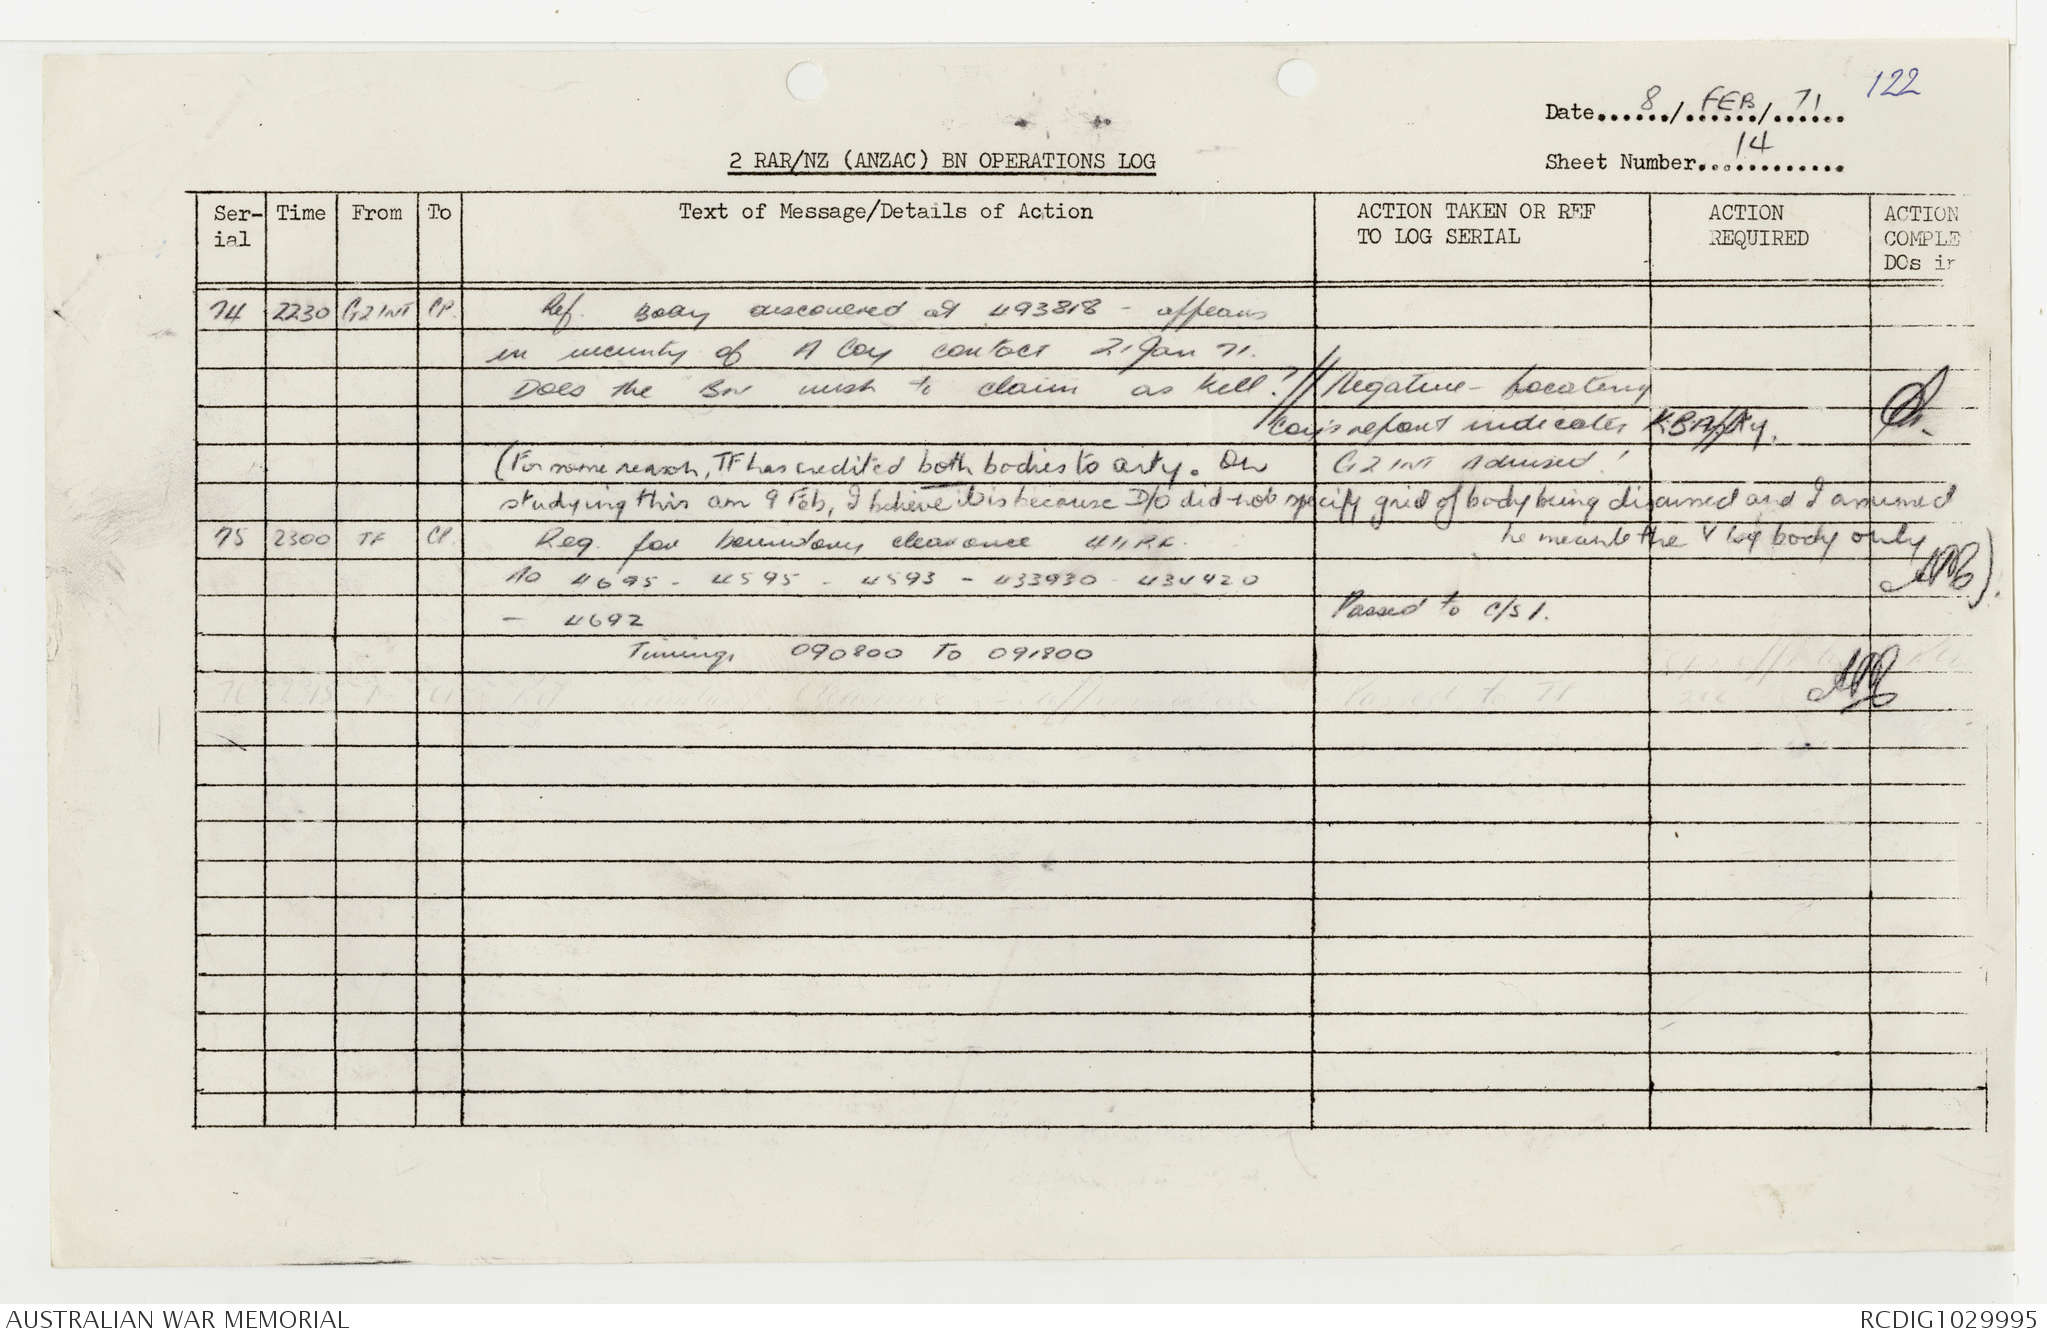 122
Date 8/FEB/71
Sheet Number 14
2 RAR/NZ (ANZAC) BN OPERATIONS LOG
Ser-ial Time From To Text of Message/Details of Action ACTION TAKEN OR REF TO LOG SERIAL ACTION REQUIRED ACTION COMPLE DOs in
74 2230 G2 INT CP. Ref. Body discovered at 493818 - appears
in vicinity of A Coy contact 21 Jan 71.
Does the Bn wish to claim as kill? // Negative - Locating
Coy's report indicates KBArty.
(For some reason, TF has credited both bodies to arty. On G2 INT Advised!
studying this am 9 Feb, I believe it is because D/O did not specify grid of body being discussed and I assumed
he meant the V Coy body only
75 2300 TF CP. Req. for boundary clearance
AO 4695 - 4595 - 4593 - 433930 - 434920
- 4692 Passed to C/S 1.
Timings 090800 To 091800
76 Clearance Passed to TF
AUSTRALIAN WAR MEMORIAL
RCDIG1029995